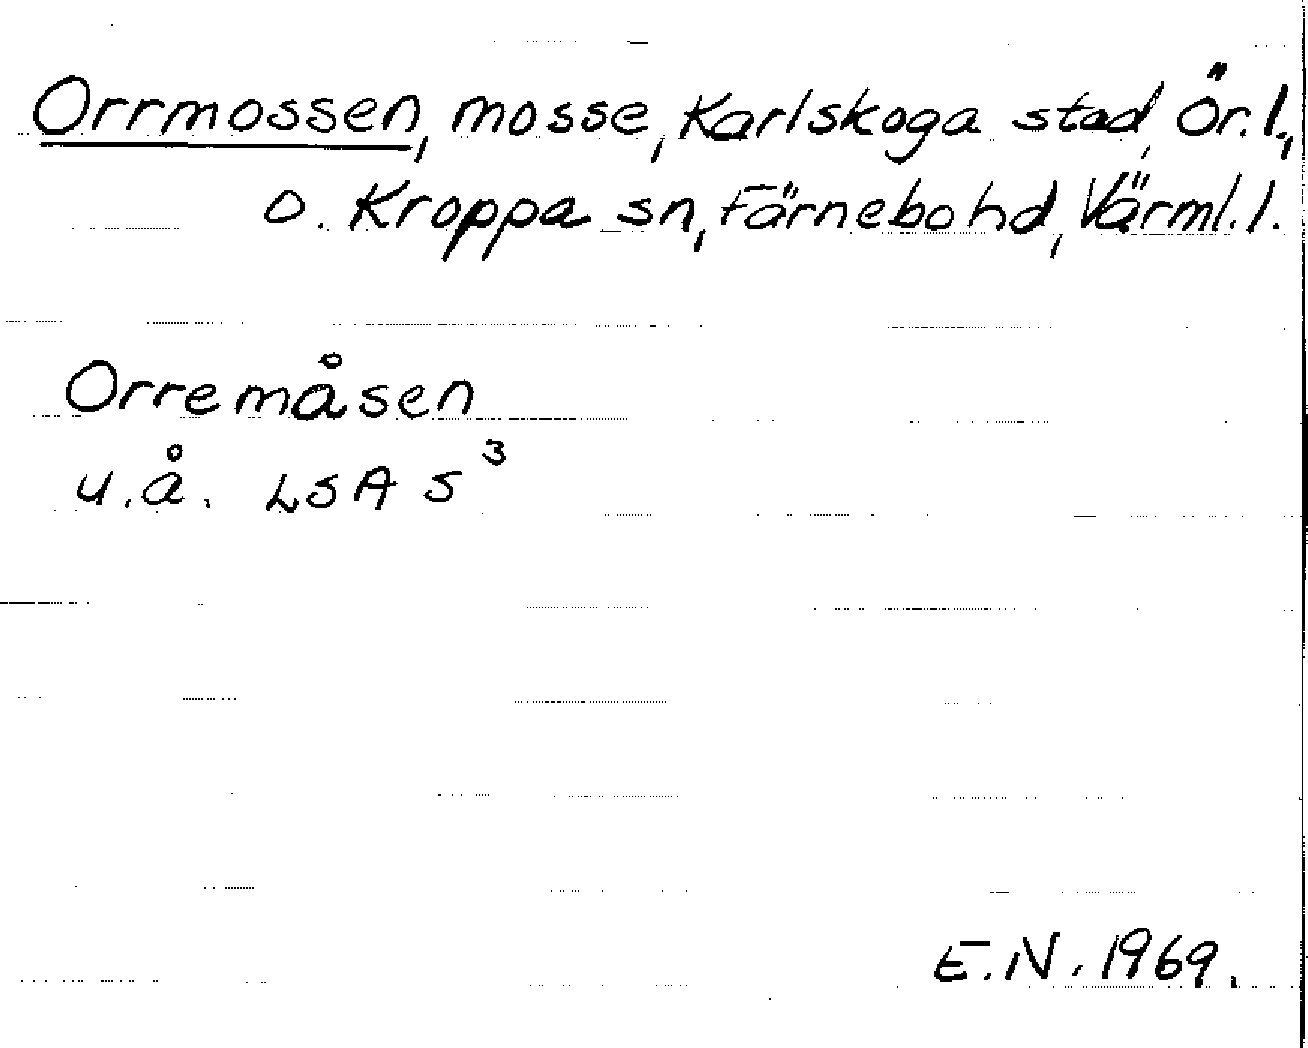 Orrmossen, mosse, Karlskoga stad, Ör.l.,
o. Kroppa sn, Färnebo hd, Värml.l.
Orremåsen
u.å. LSA S³
E.N. 1969.